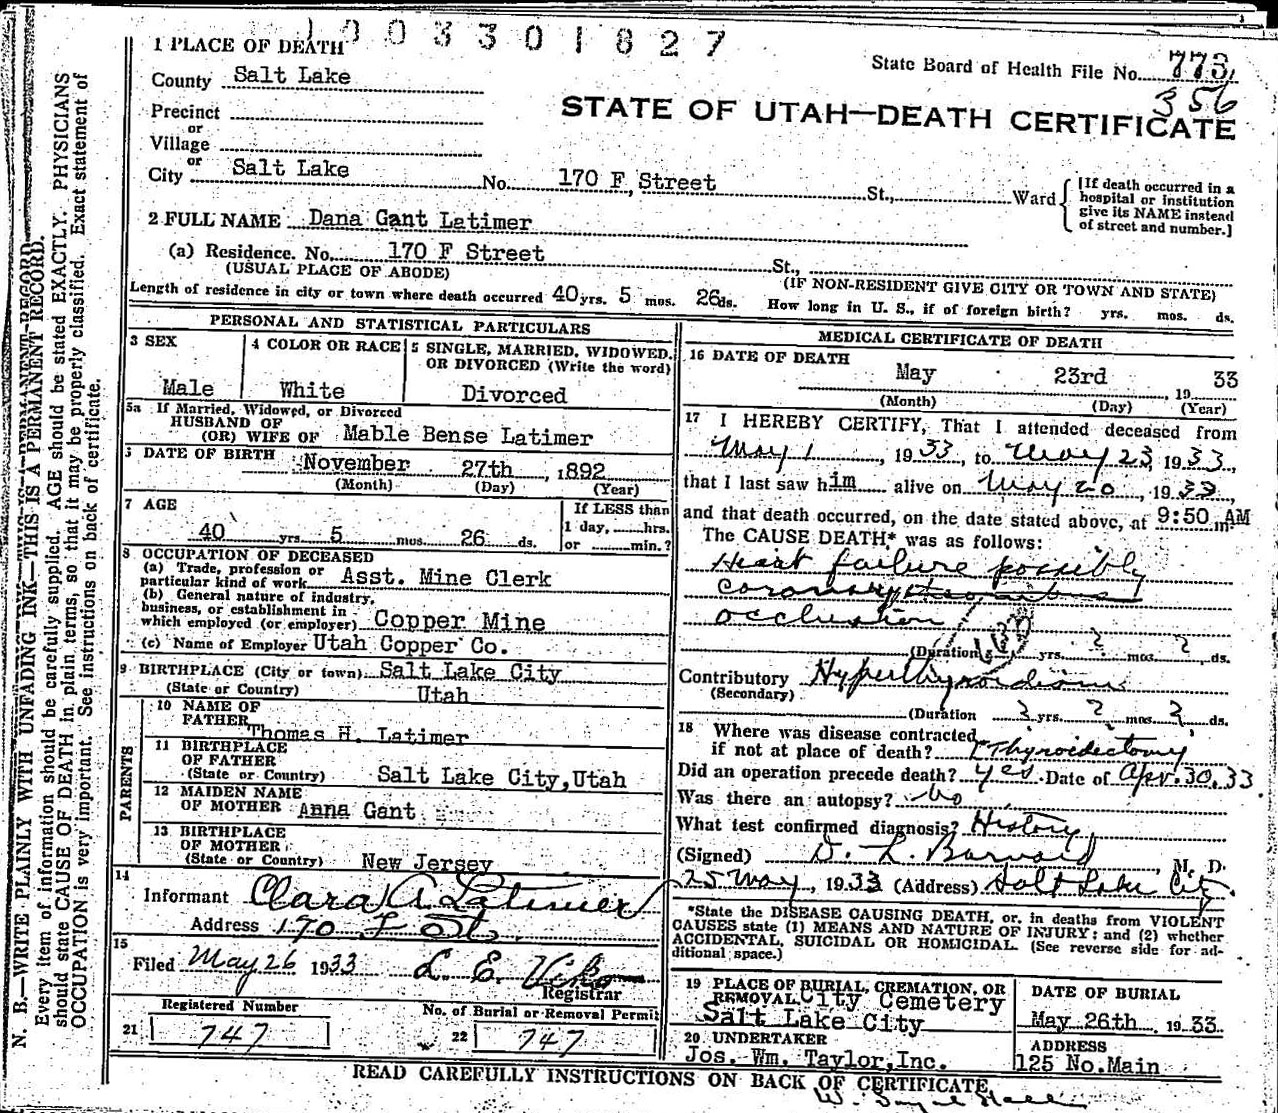 1003301827
1 PLACE OF DEATH
State Board of Health File No. 773
356
County Salt Lake
STATE OF UTAH—DEATH CERTIFICATE
Precinct
or
Village
or
City Salt Lake No. 170 F Street St., Ward
[If death occurred in a hospital or institution give its NAME instead of street and number.]
2 FULL NAME Dana Gant Latimer
(a) Residence. No. 170 F Street St.,
(USUAL PLACE OF ABODE) (IF NON-RESIDENT GIVE CITY OR TOWN AND STATE)
Length of residence in city or town where death occurred 40 yrs. 5 mos. 26 ds. How long in U. S., if of foreign birth? yrs. mos. ds.
PERSONAL AND STATISTICAL PARTICULARS
3 SEX
Male
4 COLOR OR RACE
White
5 SINGLE, MARRIED, WIDOWED, OR DIVORCED (Write the word)
Divorced
5a If Married, Widowed, or Divorced
HUSBAND OF
(OR) WIFE OF Mable Bense Latimer
6 DATE OF BIRTH November 27th, 1892
(Month) (Day) (Year)
7 AGE
40 yrs. 5 mos. 26 ds.
If LESS than
1 day, hrs.
or min.?
8 OCCUPATION OF DECEASED
(a) Trade, profession or
particular kind of work Asst. Mine Clerk
(b) General nature of industry,
business, or establishment in
which employed (or employer) Copper Mine
(c) Name of Employer Utah Copper Co.
9 BIRTHPLACE (City or town) Salt Lake City
(State or Country) Utah
PARENTS
10 NAME OF
FATHER Thomas H. Latimer
11 BIRTHPLACE
OF FATHER
(State or Country) Salt Lake City, Utah
12 MAIDEN NAME
OF MOTHER Anna Gant
13 BIRTHPLACE
OF MOTHER
(State or Country) New Jersey
14
Informant Clara A Latimer
Address 170 F St.
15
Filed May 26 1933 L. E. Viko
Registrar
Registered Number
21 747
No. of Burial or Removal Permit
22 747
MEDICAL CERTIFICATE OF DEATH
16 DATE OF DEATH
May 23rd, 19 33
(Month) (Day) (Year)
17 I HEREBY CERTIFY, That I attended deceased from
May 1, 1933, to May 23 1933,
that I last saw him alive on May 20, 1933,
and that death occurred, on the date stated above, at 9:50 AM m.
The CAUSE DEATH* was as follows:
Heart failure possibly
coronary
occlusion
(Duration ? yrs. ? mos. ? ds.
Contributory Hyperthyroidism
(Secondary)
(Duration ? yrs. ? mos. ? ds.
18 Where was disease contracted
if not at place of death? Thyroidectomy
Did an operation precede death? yes Date of Apr. 30, 33.
Was there an autopsy? No
What test confirmed diagnosis? History
(Signed) D. L. Barnard, M. D.
25 May, 1933 (Address) Salt Lake City.
*State the DISEASE CAUSING DEATH, or, in deaths from VIOLENT
CAUSES state (1) MEANS AND NATURE OF INJURY; and (2) whether
ACCIDENTAL, SUICIDAL OR HOMICIDAL. (See reverse side for additional space.)
19 PLACE OF BURIAL, CREMATION, OR
REMOVAL City Cemetery
Salt Lake City
DATE OF BURIAL
May 26th, 1933
20 UNDERTAKER
Jos. Wm. Taylor, Inc.
ADDRESS
125 No. Main
READ CAREFULLY INSTRUCTIONS ON BACK OF CERTIFICATE
N. B.—WRITE PLAINLY WITH UNFADING INK—THIS IS A PERMANENT RECORD.
Every item of information should be carefully supplied. AGE should be stated EXACTLY. PHYSICIANS
should state CAUSE OF DEATH in plain terms, so that it may be properly classified. Exact statement of
OCCUPATION is very important. See instructions on back of certificate.